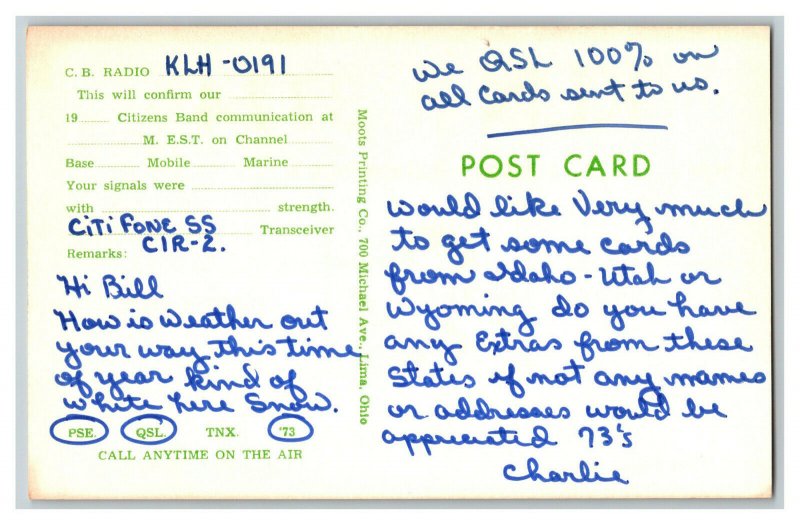 C. B. RADIO KLH-0191
This will confirm our
19 Citizens Band communication at
M. E.S.T. on Channel
Base Mobile Marine
Your signals were
with strength.
CiTi FONE SS Transceiver
Remarks: CIR-2.
Hi Bill
How is weather out
your way this time
of year kind of
white here Snow.
PSE. QSL. TNX. '73
CALL ANYTIME ON THE AIR
Moots Printing Co., 700 Michael Ave., Lima, Ohio
We QSL 100% on
all cards sent to us.
POST CARD
would like Very much
to get some cards
from Idaho-Utah or
Wyoming do you have
any Extras from these
States if not any names
or addresses would be
appreciated 73's
Charlie